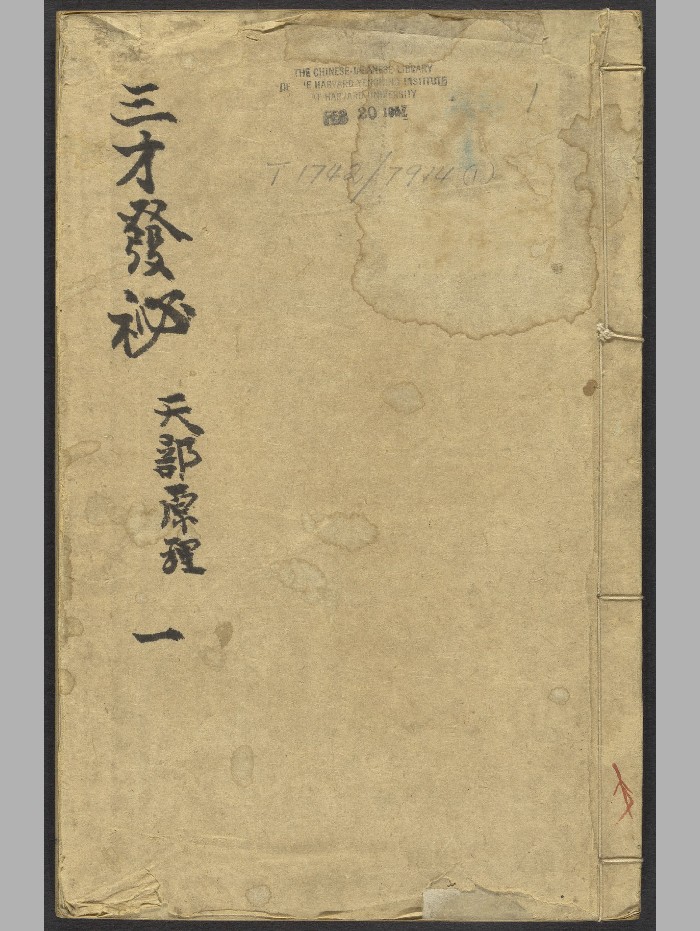 三才發祕
天部原理
一
THE CHINESE-JAPANESE LIBRARY
OF THE HARVARD-YENCHING INSTITUTE
AT HARVARD UNIVERSITY
FEB 20 19
1
T 1742/7914 (1)